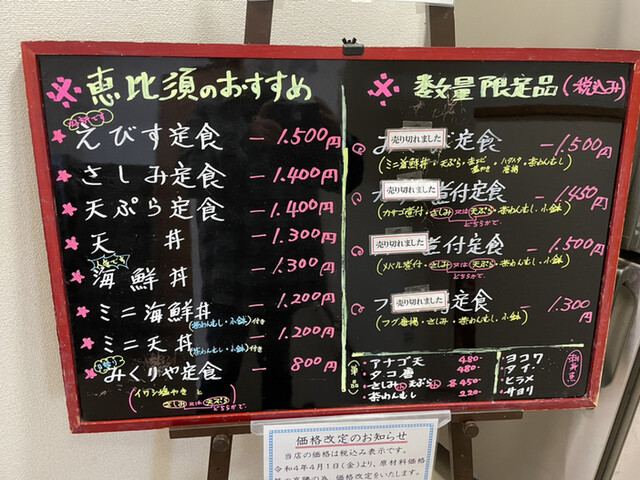 ※ 恵比須のおすすめ
えびす定食 ー 1.500円
さしみ定食 ー 1.400円
天ぷら定食 ー 1.400円
天 丼 ー 1.300円
人気です
海鮮丼 ー 1.300円
ミニ海鮮丼 ー 1.200円
(茶わんむし・小鉢)付き
ミニ天丼 ー 1.200円
(茶わんむし・小鉢)付き
みくりや定食 ー 800円
(イワシ塩やきと
さしみ又は天ぷら
どちらか)
※ 数量限定品(税込み)
売り切れました
定食 ー 1.500円
売り切れました
煮付定食 ー 1.450円
(カサゴ煮付・さしみ又は天ぷら・茶わんむし・小鉢)
どちらかで
売り切れました
煮付定食 ー 1.500円
(メバル煮付・さしみ又は天ぷら・茶わんむし・小鉢)
どちらかで
売り切れました
フグ 定食 ー 1.300円
(フグ唐揚・さしみ・茶わんむし・小鉢)
単品
アナゴ天 480-
タコ 480-
さしみ小 天ぷら小 各450
茶わんむし 220-
ヨコワ
タイ
ヒラメ
サヨリ
価格改定のお知らせ
当店の価格は税込み表示です。
令和4年4月1日(金)より、原材料価格
等の高騰の為、価格改定をいたします。